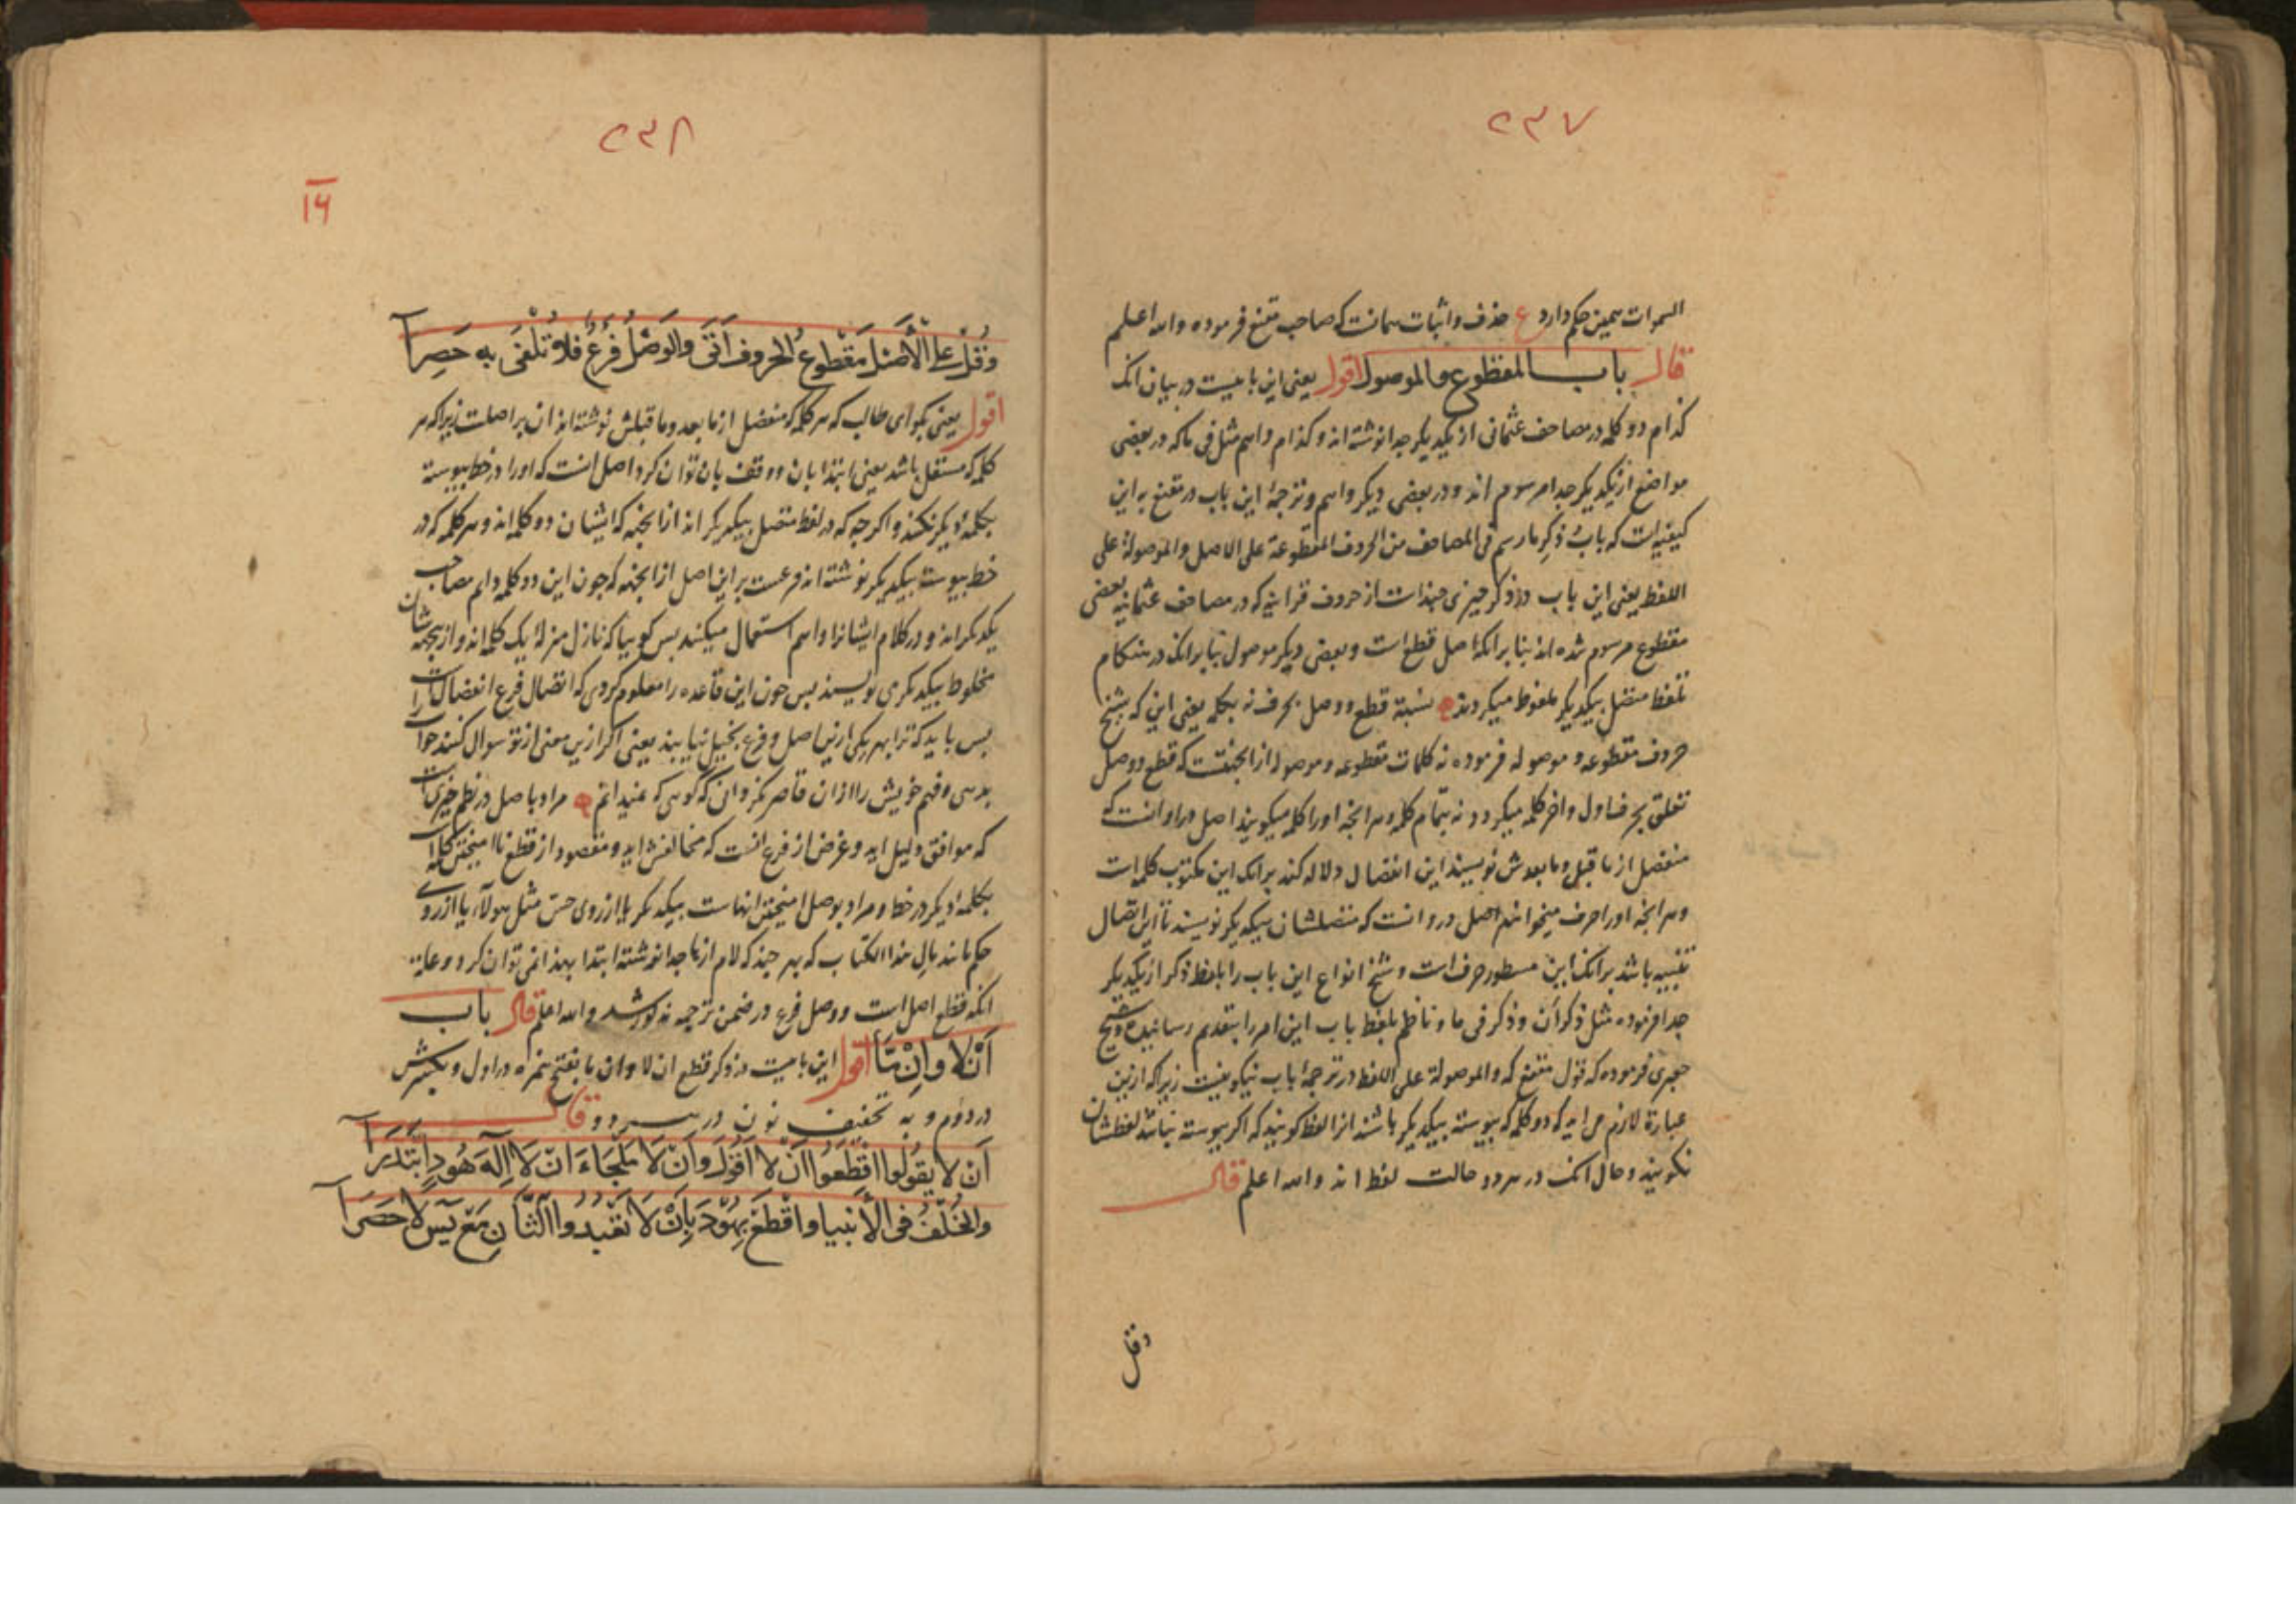 ٢٣٧
السموات همین حکم دارد ع حذف و اثبات همانست که صاحب مقنع فرموده والله اعلم
قال باب المقطوع والموصول اقول یعنی این بابیست در بیان انک
کدام دو کلمه در مصاحف عثمانی از یکدیکر جدا نوشته اند و کدام واهم مثل فی ما که در بعضی
مواضع از یکدیکر جدا مرسوم اند و در بعضی دیکر واهم و ترجمهٔ این باب در مقنع بر این
کیفیه است که باب ذکر ما رسم فی المصاحف من الحروف المقطوعة علی الاصل والموصولة علی
اللفظ یعنی این باب در ذکر چیزی چند است از حروف قرانیه که در مصاحف عثمانیه بعضی
مقطوع مرسوم شده اند بنا بر انکه اصل قطع است و بعضی دیکر موصول بنا بر انک در هنکام
تلفظ متصل بیکدیکر ملفوظ میکردند نسبة قطع و وصل بحرف نه بکلمه یعنی این که شیخ
حروف مقطوعه و موصوله فرموده نه کلمات مقطوعه و موصوله از انجهتست که قطع و وصل
تعلق بحرف اول و اخر کلمه میکردد نه بتمام کلمه و هر انچه اورا کلمه میکویند اصل درو انست که
منفصل از ما قبل و ما بعدش نویسند این انفصال دلاله کند بر انک این مکتوب کلمه است
و هر انچه اورا حرف میخوانند اصل درو انست که متصلشان بیکدیکر نویسند تا این اتصال
تنبیه باشد بر انک این مسطور حرف است و شیخ انواع این باب را بلفظ ذکر از یکدیکر
جدا فرموده مثل ذکر أن و ذکر فی ما و ناظم بلفظ باب این امر را بتقدیم رسانیده و شیخ
جعبری فرموده که قول مقنع که والموصولة علی اللفظ در ترجمهٔ باب نیکو نیست زیرا که ازین
عبارة لازم می اید که دو کلمه که پیوسته بیکدیکر باشند انرا لفظ کویند که اکر پیوسته نباشد لفظشان
نکویند و حال انک در هر دو حالت لفظ اند والله اعلم قال
وقل
٢٣٨
١٤
وَقُلْ عَلَى الْأَصْلِ مَقْطُوعُ الْحُرُوفِ أَتَى وَالْوَصْلُ فَرْعٌ فَلَا تُلْفَى بِهِ حَصِرَا
اقول یعنی بکو ای طالب که هر کلمه که منفصل از ما بعد و ما قبلش نوشته اند ان بر اصلست زیرا که هر
کلمه که مستقل باشد یعنی ابتدا بان و وقف بان توان کرد اصل انست که اورا در خط پیوسته
بکلمهٔ دیکر نکنند و اکر چه که در لفظ متصل بیکدیکر اند از انجهة که ایشان دو کلمه اند و هر کلمه که در
خط پیوسته بیکدیکر نوشته اند فرعست بر این اصل از انجهة که چون این دو کلمه دایم مصاحب
یکدیکر اند و در کلام ایشانرا واهم استعمال میکنند پس کوییا که نازل منزلهٔ یک کلمه اند و ازینجهة شان
مخلوط بیکدیکر می نویسند پس چون این قاعده را معلوم کردی که اتصال فرع انفصال است
پس باید که ترا بهر یکی ازین اصل و فرع بخیل نیابند یعنی اکر ازین معنی از تو سوال کنند جواب
بدهی و فهم خویش را از ان قاصر نکردانی که کویی که نمیدانم مراد باصل در نظم چیزیست
که موافق دلیل اید و غرض از فرع انست که مخالفش اید و مقصود از قطع نا امیختن کلمه است
بکلمهٔ دیکر در خط و مراد بوصل امیختن انهاست بیکدیکر یا از روی حس مثل هولآء یا از روی
حکم مانند مال هذا الکتاب که هر چند که لام از ها جدا نوشته ابتدا بهذا نمی توان کرد و علة
انکه قطع اصل است و وصل فرع در ضمن ترجمه مذکور شد والله اعلم قال باب
أَنْ لَا وَإِنْ مَا اقول این بابیست در ذکر قطع ان لا و ان ما بفتح همزه در اول و بکسرش
در دوم و به تخفیف نون در هر دو قال
أَنْ لَا يَقُولُوا اقْطَعُوا أَنْ لَا أَقُولَ وَأَنْ لَا مَلْجَأَ أَنْ لَا إِلَهَ هُودٍ ابْتُدِرَا
وَالْخُلْفُ فِي الْأَنْبِيَا وَاقْطَعْ بِهُودَ بِأَنْ لَا تَعْبُدُوا الثَّانِ مَعْ يَس لَا حَصَرَا